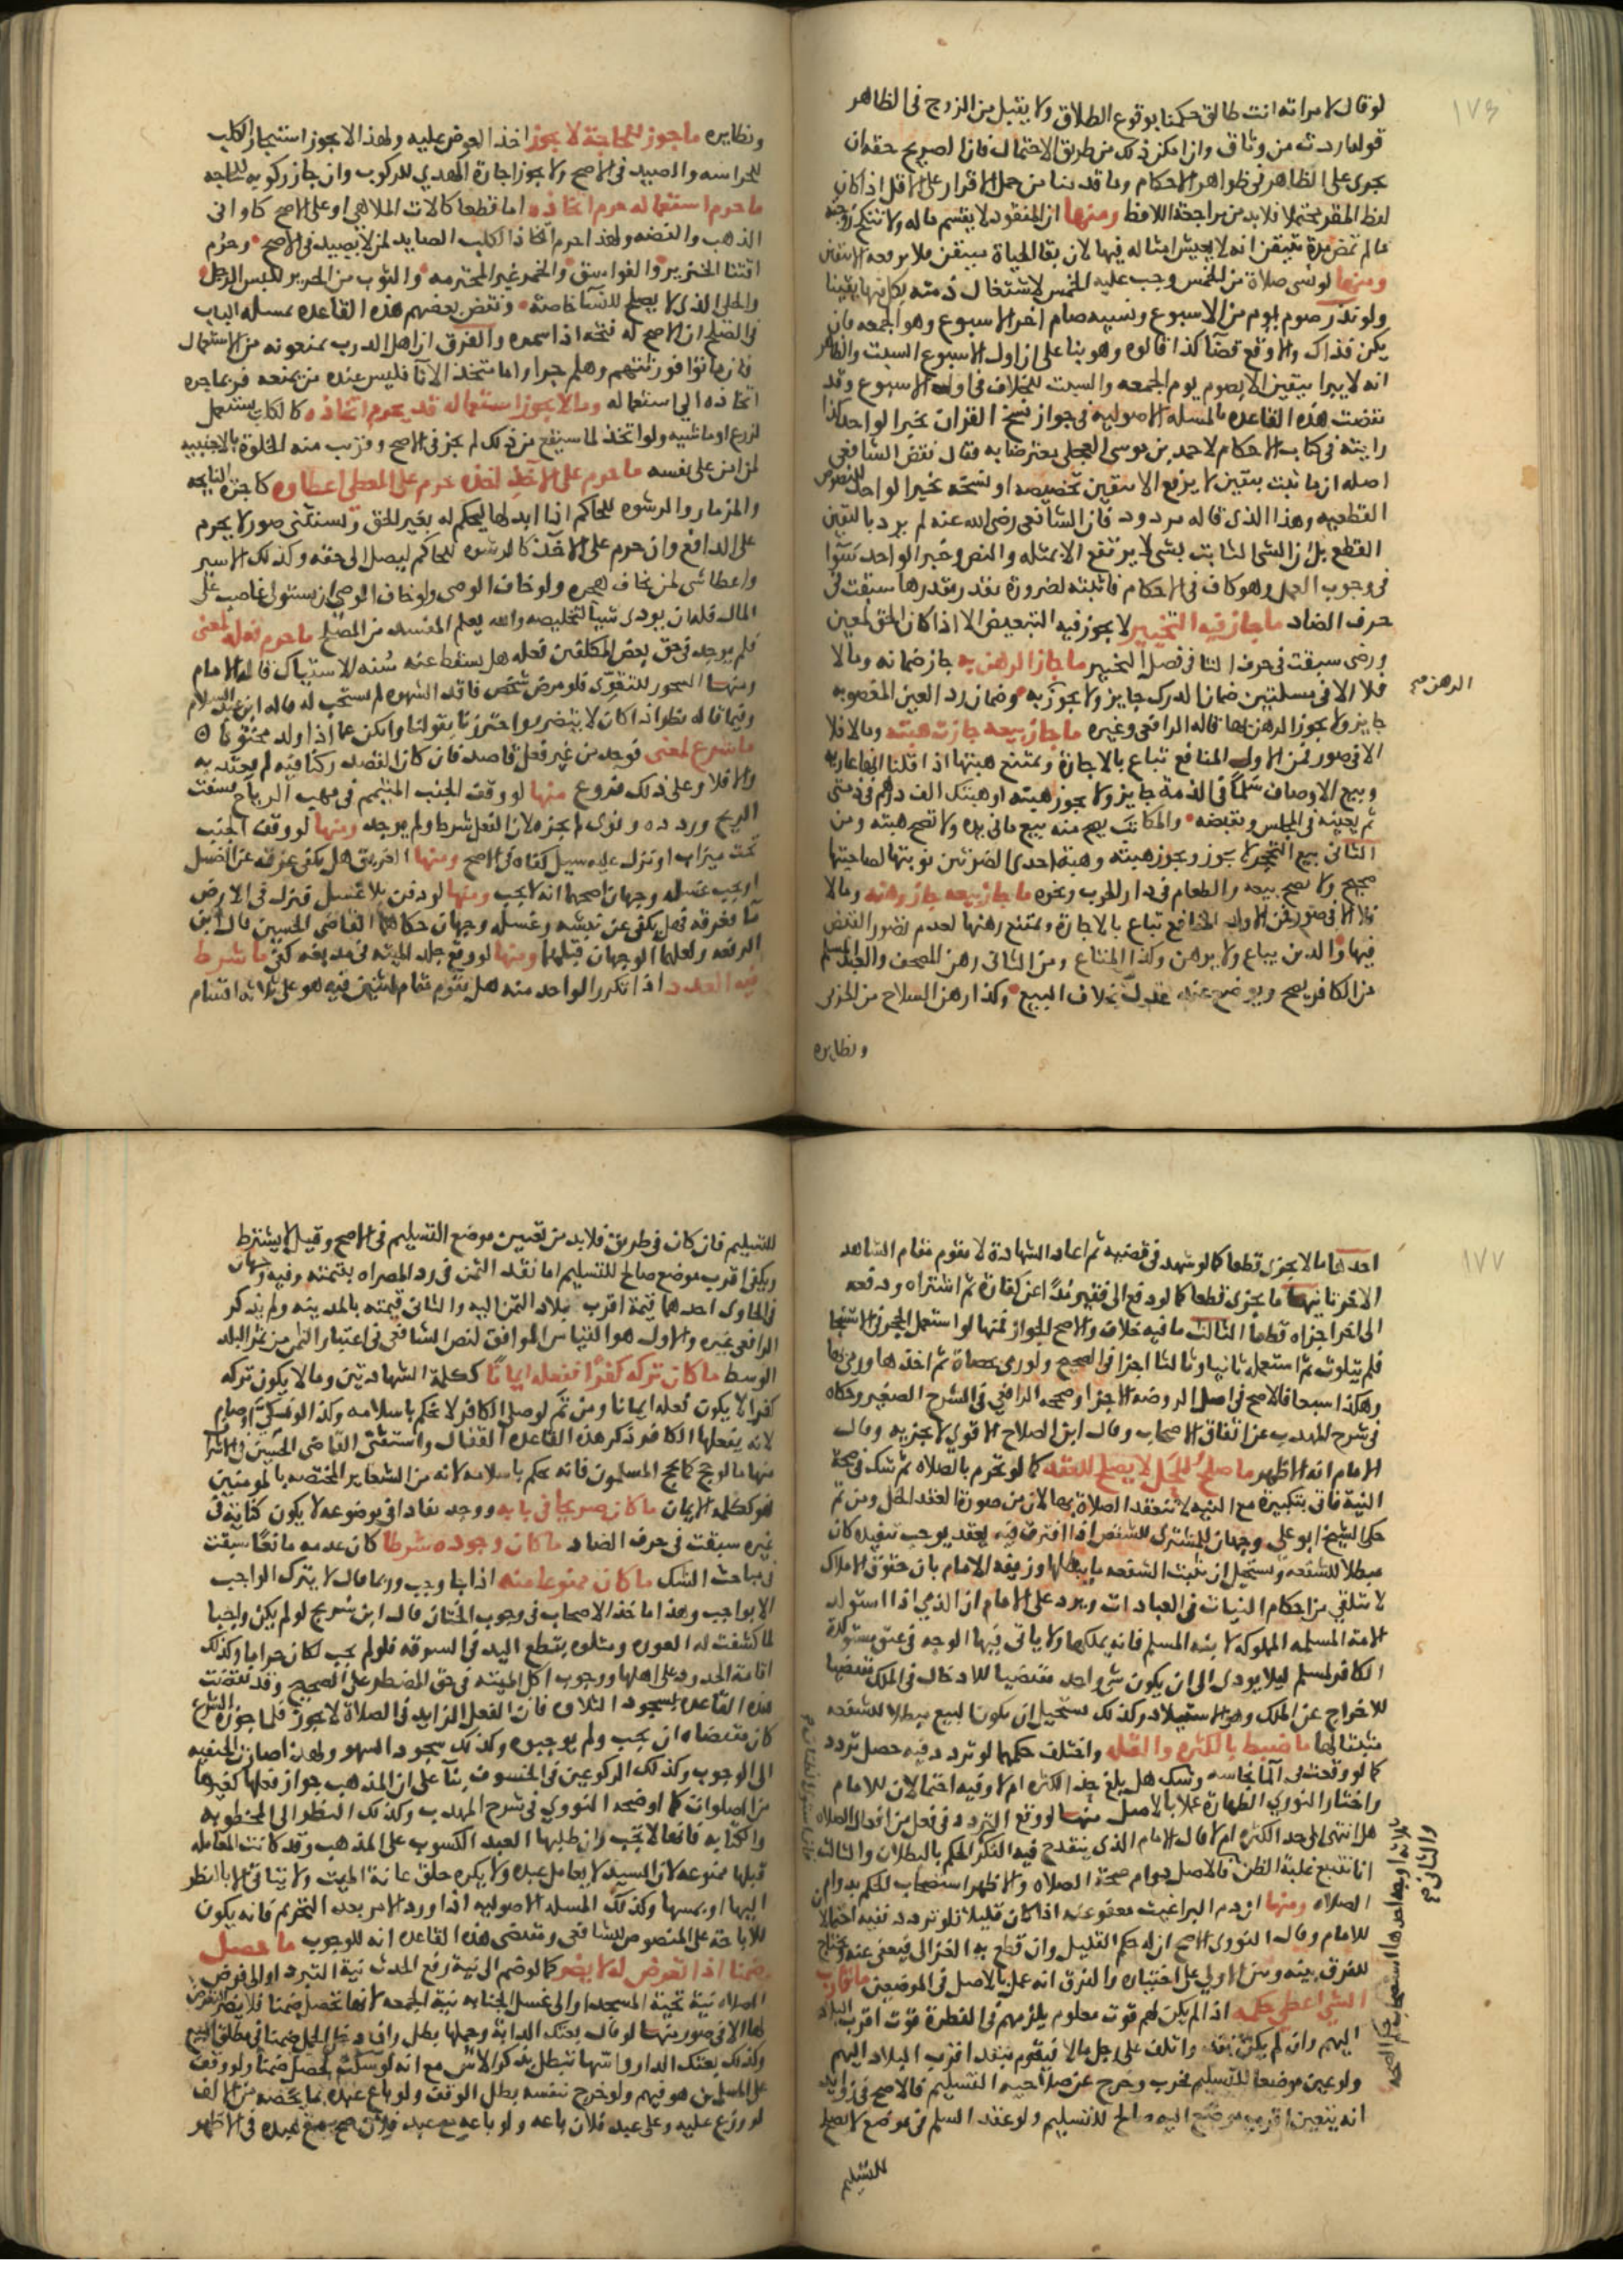 ١٧٦
لو قال لامراته انت طالق حكمنا بوقوع الطلاق ولا يقبل من الزوج في الظاهر
قوله اردت من وثاق وان امكن ذلك من طريق الاحتمال فان الصريح حقه ان
يجرى على الظاهر في ظواهر الاحكام وما قدمنا من حمل الاقرار على الاقل اذا كان
لفظ المقر محتملا فلا بد من مراجعة اللافظ ومنها ان المفقود لا يقسم ماله ولا تنكح زوجته
مالم تمض مدة يتيقن انه لا يعيش امثاله فيها لان بقا الحياة متيقن فلا يرفعه الا بيقين
ومنها لو نسى صلاة من الخمس وجب عليه الخمس لاشتغال ذمته بكل منها يقينا
ولو نذر صوم يوم من الاسبوع ونسيه صام اخر الاسبوع وهو الجمعه فان
يكن فذاك والا وقع قضا كذا قالوه وهو بنا على ان اول الاسبوع السبت والظاهر
انه لا يبرا بيقين الا بصوم يوم الجمعه والسبت للخلاف في اول الاسبوع وقد
نقضت هذه القاعده بالمسله الاصوليه في جواز نسخ القران بخبر الواحد كذا
رايته في كتاب الاحكام لاحمد بن موسى العجلي معترضا به فقال نقض الشافعي
اصله ان ما ثبت بيقين لا يرفع الا بيقين تخصيصه او نسخه بخبر الواحد للنصوص
القطعيه وهذا الذى قاله مردود فان الشافعي رضى الله عنه لم يرد باليقين
القطع بل ان الشى الثابت بشى لا يرتفع الا بمثله والنص وخبر الواحد سوا
في وجوب العمل وهو كاف في الاحكام
حرف الضاد ما جاز فيه التخيير لا يجوز فيه التبعيض الا اذا كان الحق لمعين
ورضى سبقت في حرف التا في فصل التخيير ما جاز الرهن به جاز ضمانه وما لا
فلا الا في مسلتين ضمان الدرك جايز ولا يجوز به وضمان رد العين المغصوبه
الرهن صح
جايز ولا يجوز الرهن بها قاله الرافعي وغيره ما جاز بيعه جازت هبته وما لا فلا
الا في صور فمن الاول المنافع تباع بالاجارة وتمتنع هبتها اذا قلنا انها عاريه
وبيع الاوصاف سلما في الذمة جايز ولا يجوز هبته او وهبتك الف درهم في ذمتى
ثم يعينه في المجلس وتقبضه والمكاتب يصح منه بيع ما في يده ولا تصح هبته ومن
الثاني بيع التحجر لا يجوز ويجوز هبته وهبة احدى الضرتين نوبتها لصاحبتها
صحيح ولا تصح بيعه والطعام في دار الحرب ونحوه ما جاز بيعه جاز رهنه وما لا
فلا الا في صور فمن الاول المنافع تباع بالاجارة ويمتنع رهنها لعدم تصور القبض
فيها والدين يباع ولا يرهن وكذا المتاع ومن الثاني رهن المصحف والعبد المسلم
من الكافر يصح ويوضع عند عدل بخلاف البيع وكذا رهن السلاح من الحربى
ونظايره
ونظايره ما جوز للحاجة لا يجوز اخذ العوض عليه ولهذا لا يجوز استيجار الكلب
للحراسه والصيد في الاصح ولا يجوز اجارة الهدي للركوب وان جاز ركوبه للحاجه
ما حرم استعماله حرم اتخاذه اما قطعا كالات الملاهي او على الاصح كاواني
الذهب والفضه ولهذا حرم اتخاذ الكلب الصايد لمن لا يصيد في الاصح وحرم
اقتنا الخنزير والفواسق والخمر غير المحترمه والثوب من الحرير للبس الرجل
والحلى الذى لا يصلح للنسا خاصة ونقض بعضهم هذه القاعده بمسله الباب
في الصلح ان الاصح له فتحه اذا سمره والفرق ان اهل الدرب يمنعونه من الاستعمال
فان ماتوا فورثتهم وهلم جرا واما متخذ الانا فليس عنده من يمنعه فربما جره
اتخاذه الى استعماله وما لا يجوز استعماله قد يحرم اتخاذه كالكلب يستعمل
لزرع او ماشيه ولو اتخذ لما سينتج من ذلك لم يجز في الاصح وقرب منه الخلوة بالاجنبيه
لمن امن على نفسه ما حرم على الاخذ اخذه حرم على المعطى اعطاوه كاجرة النايحه
والمزمار والرشوه للحاكم اذا بذلها ليحكم له بغير الحق ويستثنى صور لا يحرم
على الدافع وان حرم على الاخذ كالرشوه للحاكم ليصل الى حقه وكذلك الاسير
واعطا شى لمن يخاف هجوه ولو خاف الوصى ان يستولى غاصب على
المال فله ان يودى شيا لتخليصه والله يعلم المفسد من المصلح ما حرم فعله لمعنى
فلم يوجد في حق بعض المكلفين فعله هل يسقط عنه سنه الاستياك قاله الامام
ومنها السحور للتقوى فلو مرض شخص فاقد الشهوه لم يستحب له قاله ابن عبد السلام
وفيما قاله نظر
ما شرع لمعنى فوجد من غير فعل قاصد فان كان القصد ركنا فيه لم يعتد به
والا فلا وعلى ذلك فروع منها لو وقف الجنب المتيمم في مهب الرياح فسفت
الريح وردده ونوى لم يجزه لان النقل شرط ولم يوجد ومنها لو وقف الجنب
تحت ميزاب او نزل عليه سيل كفاه في الاصح ومنها الغريق هل يكفى غرقه عن الغسل
او يجب غسله وجهان اصحهما انه لا يجب ومنها لو دفن بلا غسل فنزل في الارض
ما فغرقه فهل يكفى عن نبشه وغسله وجهان حكاهما القاضى الحسين قال ابن
الرفعه ولعلهما الوجهان قبلهما ومنها لو وقع جلد الميته في مدبغه كفى ما شرط
فيه العدد اذا تكرر الواحد منه هل يقوم مقام اثنين فيه هو على ثلاثه اقسام
١٧٧
احدها ما لا يجزى قطعا كما لو شهد في قضيه ثم اعاد الشهادة لا يقوم مقام الشاهد
الاخر ثانيها ما يجزى قطعا كما لو دفع الى فقير مدا عن كفارة ثم اشتراه ودفعه
الى اخر اجزاه قطعا الثالث ما فيه خلاف والاصح الجواز فمنها لو استعمل الحجر في الاستنجا
فلم يتلوث ثم استعمله ثانيا وثالثا اجزا في الصحيح ولو رمى بحصاة ثم اخذها ورمى بها
وهكذا سبعا فالاصح في اصل الروضه الاجزا وصححه الرافعي في الشرح الصغير وحكاه
في شرح المهذب عن اتفاق الاصحاب وقال ابن الصلاح الاقوى لا يجزيه وقال
الامام انه الاظهر ما صلح للحل لا يصلح للعقد كما لو تحرم بالصلاه ثم شك في صحة
النية فاتى بتكبيرة مع النيه لا تنعقد الصلاة بها لان من ضرورة العقد الحل ومن ثم
حكى الشيخ ابو على وجهان
مبطلا للشفعه ويستحيل ان تثبت الشفعه ما يبطلها وزيفه الامام بان حقوق الاملاك
لا تتلقى من احكام النيات في العبادات ويرد على الامام ان الذمي اذا استولد
الامة المسلمه المملوكه لابنه المسلم فانه يملكها ولا ياتي فيها الوجه في عتق مستولدة
الكافر لمسلم ليلا يودى الى ان يكون شى واحد مقتضيا للادخال في الملك مقتضيا
للاخراج عن الملك وهو الاستيلاد وكذلك يستحيل ان يكون البيع مبطلا للشفعه
مثبتا لها ما ضبط بالكثره والقله واختلف حكمهما لو تردد فيه حصل تردد
كما لو وقعت في الما نجاسه وشك هل بلغ حد الكثره ام لا وفيه احتمالان للامام
واختار النووي الطهارة عملا بالاصل منها لو وقع التردد في فعل من افعال الصلاه
هل انتهى الى حد الكثره ام لا قال الامام الذى ينقدح فيه الحكم بالبطلان والثالث
انا نتبع غلبة الظن فالاصل دوام صحة الصلاه والاظهر استصحاب الحكم بدوام
الصلاه ومنها ان دم البراغيث معفو عنه اذا كان قليلا فلو تردد ففيه احتمالان
للامام وقال النووى الاصح ان له حكم القليل وان قطع به الغزالى فيعفى عنه ويحتاج
للفرق بينه وبين الاولى على اختياره والفرق انه عمل بالاصل في الموضعين ما قارب
الشى اعطى حكمه اذا لم يكن لهم قوت معلوم يلزمهم في الفطرة قوت اقرب البلاد
اليهم وان لم يكن نقد واتلف على رجل مالا فيقوم بنقد اقرب البلاد اليهم
ولو عين موضعا للتسليم فخرب وخرج عن صلاحيه التسليم فالاصح في زوايد
انه يتعين اقرب موضع اليه صالح للتسليم ولو عقد السلم في موضع لا يصلح
للتسليم
للتسليم فان كان في طريق فلا بد من تعيين موضع التسليم في الاصح وقيل لا يشترط
ويكفى اقرب موضع صالح للتسليم اما نقد الثمن في رد المصراه بقيمته وفيه وجهان
في الحاوى احدهما قيمة اقرب بلاد التمر اليه والثاني قيمته بالمدينه ولم يذكر
الرافعي غيره والاول هو القياس الموافق لنص الشافعي في اعتبار التمر من تمر البلد
الوسط ما كان تركه كفرا ففعله ايمانا ككلمة الشهادتين وما لا يكون تركه
كفرا لا يكون فعله ايمانا ومن ثم لو صلى الكافر لا نحكم باسلامه وكذا لو زكى او صام
لانه يفعلها الكافر ذكر هذه القاعده القفال واستثنى القاضى الحسين
منها ما لو حج كما يحج المسلمون فانه يحكم باسلامه لانه من الشعاير المختصه بالمومنين
فهو ككلمه الايمان ما كان صريحا في بابه ووجد نفاذا في موضوعه لا يكون كناية في
غيره سبقت في حرف الصاد ما كان وجوده شرطا كان عدمه مانعا سبقت
في مباحث الشك ما كان ممنوعا منه اذا جاز وجب وربما قال لا يترك الواجب
الا بواجب وهذا ماخذ الاصحاب في وجوب الختان قال ابن سريج لو لم يكن واجبا
لما كشفت له العوره ومثلوه بقطع اليد في السرقه فلو لم يجب لكان حراما وكذلك
اقامة الحدود على اهلها ووجوب اكل الميته في حق المضطر على الصحيح وقد نقضت
هذه القاعده بسجود التلاوه فان الفعل الزايد في الصلاة لا يجوز فلما جوزه الشرع
كان مقتضاه ان يجب ولم يوجبوه وكذلك سجود السهو ولهذا صار الحنفيه
الى الوجوب وكذلك الركوعين في الخسوف بنا على ان المذهب جواز فعلها كغيرها
من الصلوات كما اوضحه النووي في شرح المهذب وكذلك النظر الى المخطوبه
والكتابه فانها لا تجب وان طلبها العبد الكسوب على المذهب وقد كانت المعامله
قبلها ممنوعه لان السيد لا يعامل عبده ولا يكره حلق عانة الميت ولا يتاتى الا بالنظر
اليها او بمسها وكذلك المسله الاصوليه اذا ورد الامر بعد التحريم فانه يكون
للاباحة على المنصوص للشافعي ومقتضى هذه القاعده انه للوجوب ما حصل
ضمنا اذا تعرض له لا يضر كما لو ضم الى نية رفع الحدث نية التبرد او الى فرض
الصلاه نية تحية المسجد او الى غسل الجنابه نية الجمعه لانها تحصل ضمنا فلا يضر التعرض
لها الا في صور منها لو قال بعتك الدابة وحملها بطل وان دخل الحمل ضمنا في مطلق البيع
وكذلك بعتك الدار واسها تبطل بذكر الاس مع انه لو سكت لحصل ضمنا ولو وقف
على المسلمين هو فيهم ولو خرج نفسه بطل الوقف ولو باع عبده بما يخصه من الف
لو وزع عليه وعلى عبد فلان باعه ولو باعه مع عبد فلان صح بيع عبده في الاظهر